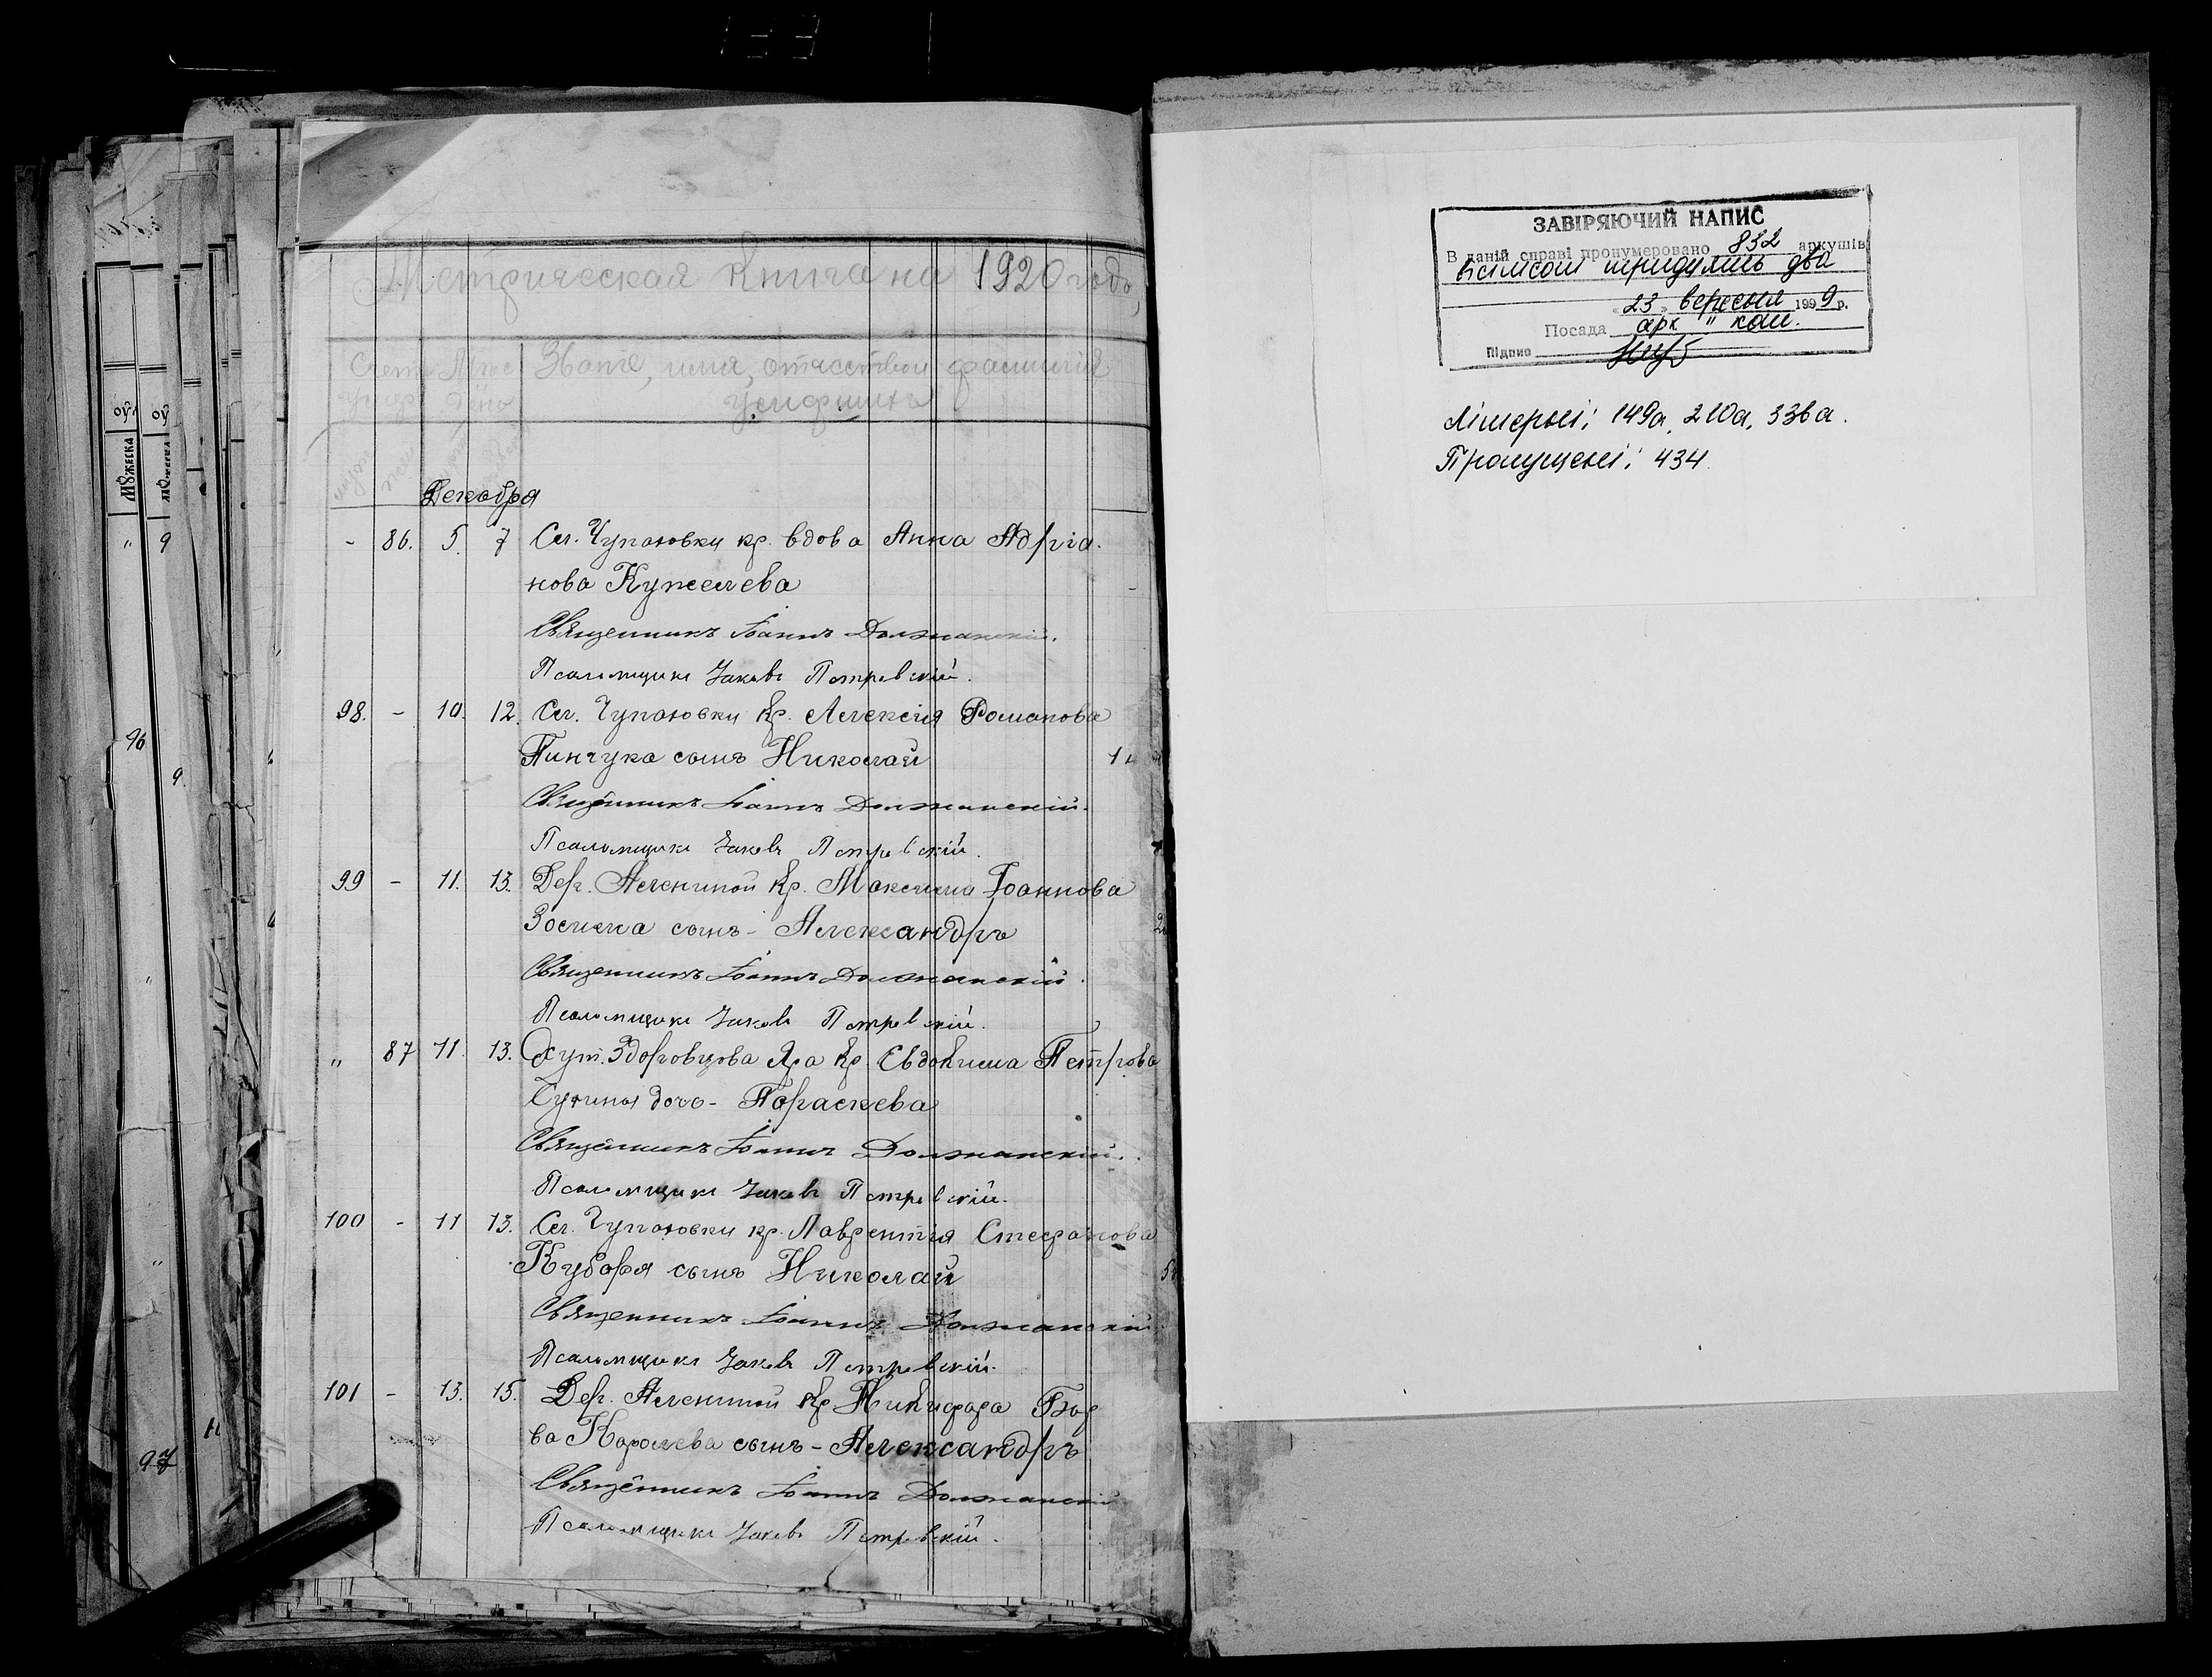 Метрическая книга на 1920 годъ,
Званіе, имя, отчество и фамилія
Декабря
- 86. 5. 7 Сл. Чупаховки кр. вдова Анна Адріа-
нова Кужелева
Священникъ Іоаннъ Должанскій.
Псаломщикъ Іаковъ Петровскій.
98. - 10. 12. Сл. Чупаховки кр. Алексія Романова
Пинчука сынъ Николай
Священникъ Іоаннъ Должанскій.
Псаломщикъ Іаковъ Петровскій.
99 - 11. 13. Дер. Алениной кр. Максима Іоаннова
сынъ - Александръ
Священникъ Іоаннъ Должанскій.
Псаломщикъ Іаковъ Петровскій.
„ 87 11. 13. Хут. Яра кр. Евдокима Петрова
дочь - Параскева
Священникъ Іоаннъ Должанскій.
Псаломщикъ Іаковъ Петровскій.
100 - 11 13. Сл. Чупаховки кр. Лаврентія Стефанова
Кубаря сынъ Николай
Священникъ Іоаннъ Должанскій
Псаломщикъ Іаковъ Петровскій.
101 - 13. 15. Дер. Алениной кр. Никифора
ва Королева сынъ - Александръ
Священникъ Іоаннъ Должанскій
Псаломщикъ Іаковъ Петровскій.
ЗАВІРЯЮЧИЙ НАПИС
В даній справі пронумеровано 832 аркушів
вісімсот тридцять два
„23„ вересня 1999 р.
Посада арк
Підпис
Літерні: 149а, 210а, 336а.
Пропущені: 434.